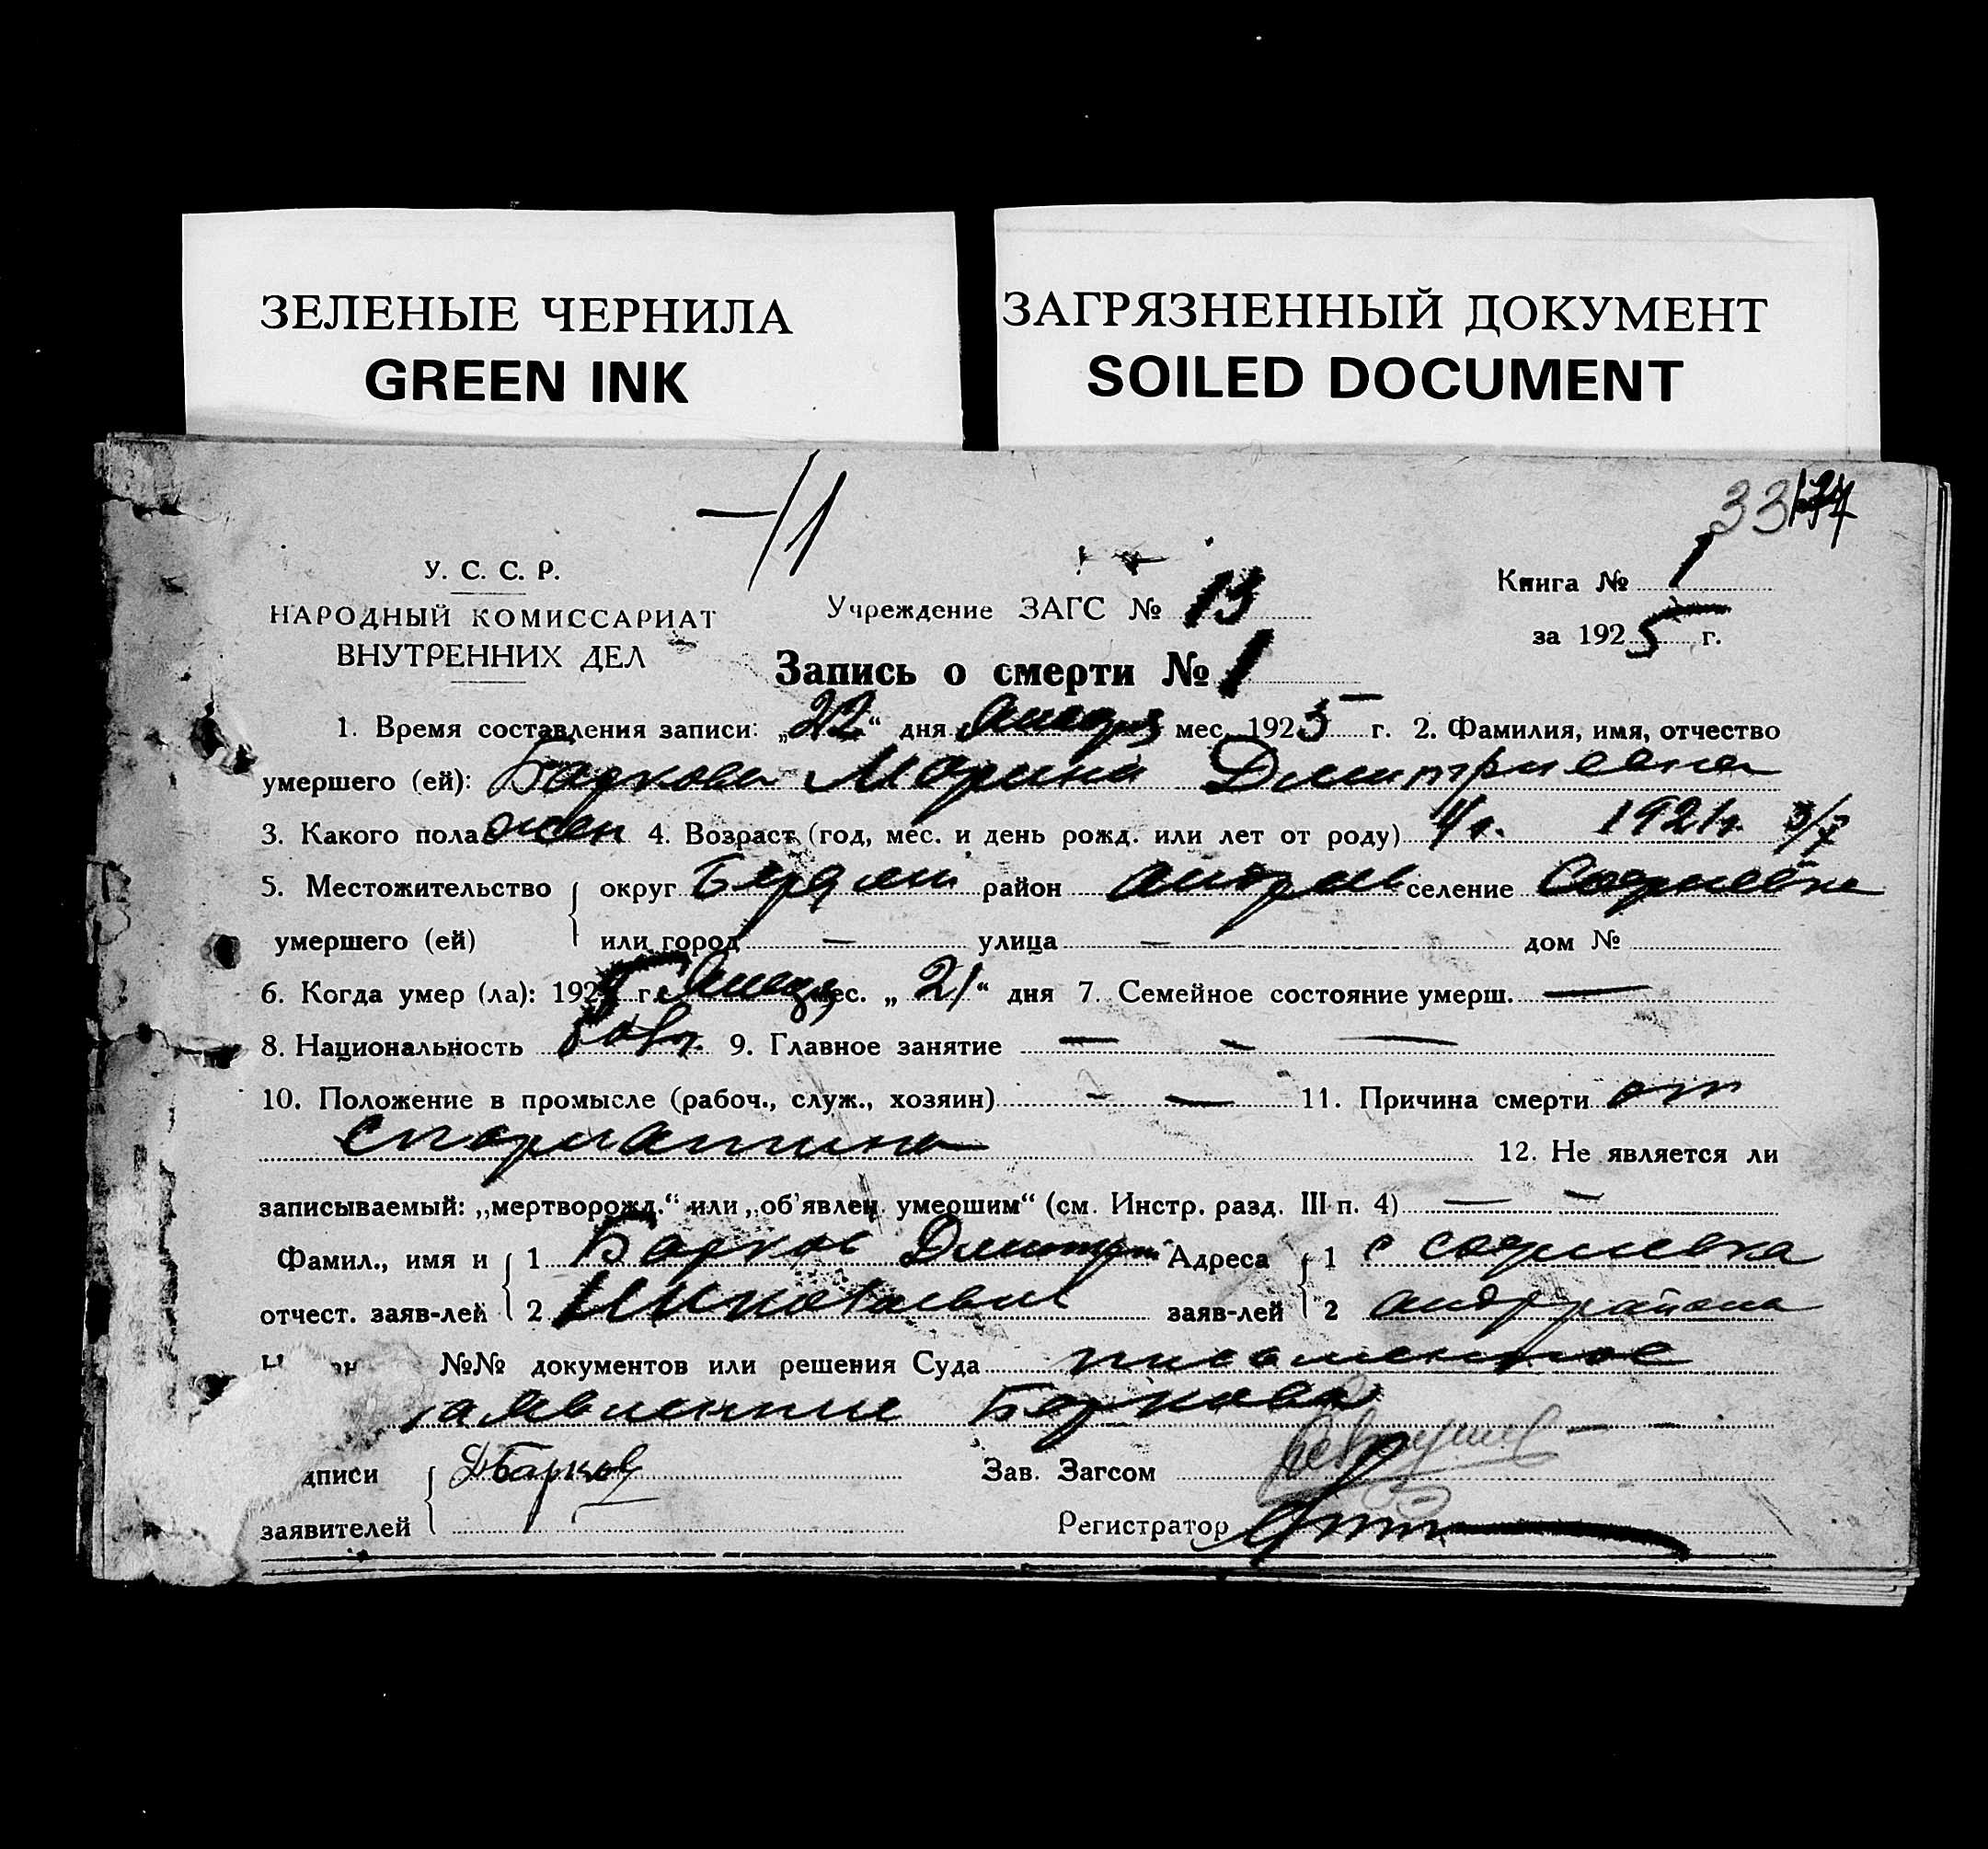 ЗЕЛЕНЫЕ ЧЕРНИЛА
GREEN INK
ЗАГРЯЗНЕННЫЙ ДОКУМЕНТ
SOILED DOCUMENT
33
У. С. С. Р.
НАРОДНЫЙ КОМИССАРИАТ
ВНУТРЕННИХ ДЕЛ
Учреждение ЗАГС № 13
Книга № 1
за 1925 г.
Запись о смерти № 1
1. Время составления записи: „22“ дня Января мес. 1925 г. 2. Фамилия, имя, отчество
умершего (ей): Баркова Марина Дмитриевна
3. Какого пола жен 4. Возраст (год, мес. и день рожд. или лет от роду) 4 г. 1921 г. 3/7
5. Местожительство округ Бердян район Андреев селение Софиевка
умершего (ей) или город — улица — дом №
6. Когда умер (ла): 1925 г. Января мес. „21“ дня 7. Семейное состояние умерш. —
8. Национальность 9. Главное занятие — — —
10. Положение в промысле (рабоч., служ., хозяин) - — 11. Причина смерти от
12. Не является ли
записываемый: „мертворожд.“ или „об'явлен. умершим“ (см. Инстр. разд. III п. 4) — —
Фамил., имя и 1 Барков Дмитрий Адреса 1 с Софиевка
отчест. заяв-лей 2 Николаевич заяв-лей 2 Андр района
№№ документов или решения Суда письменное
заявление Баркова
дписи ДБарков Зав. Загсом
заявителей Регистратор